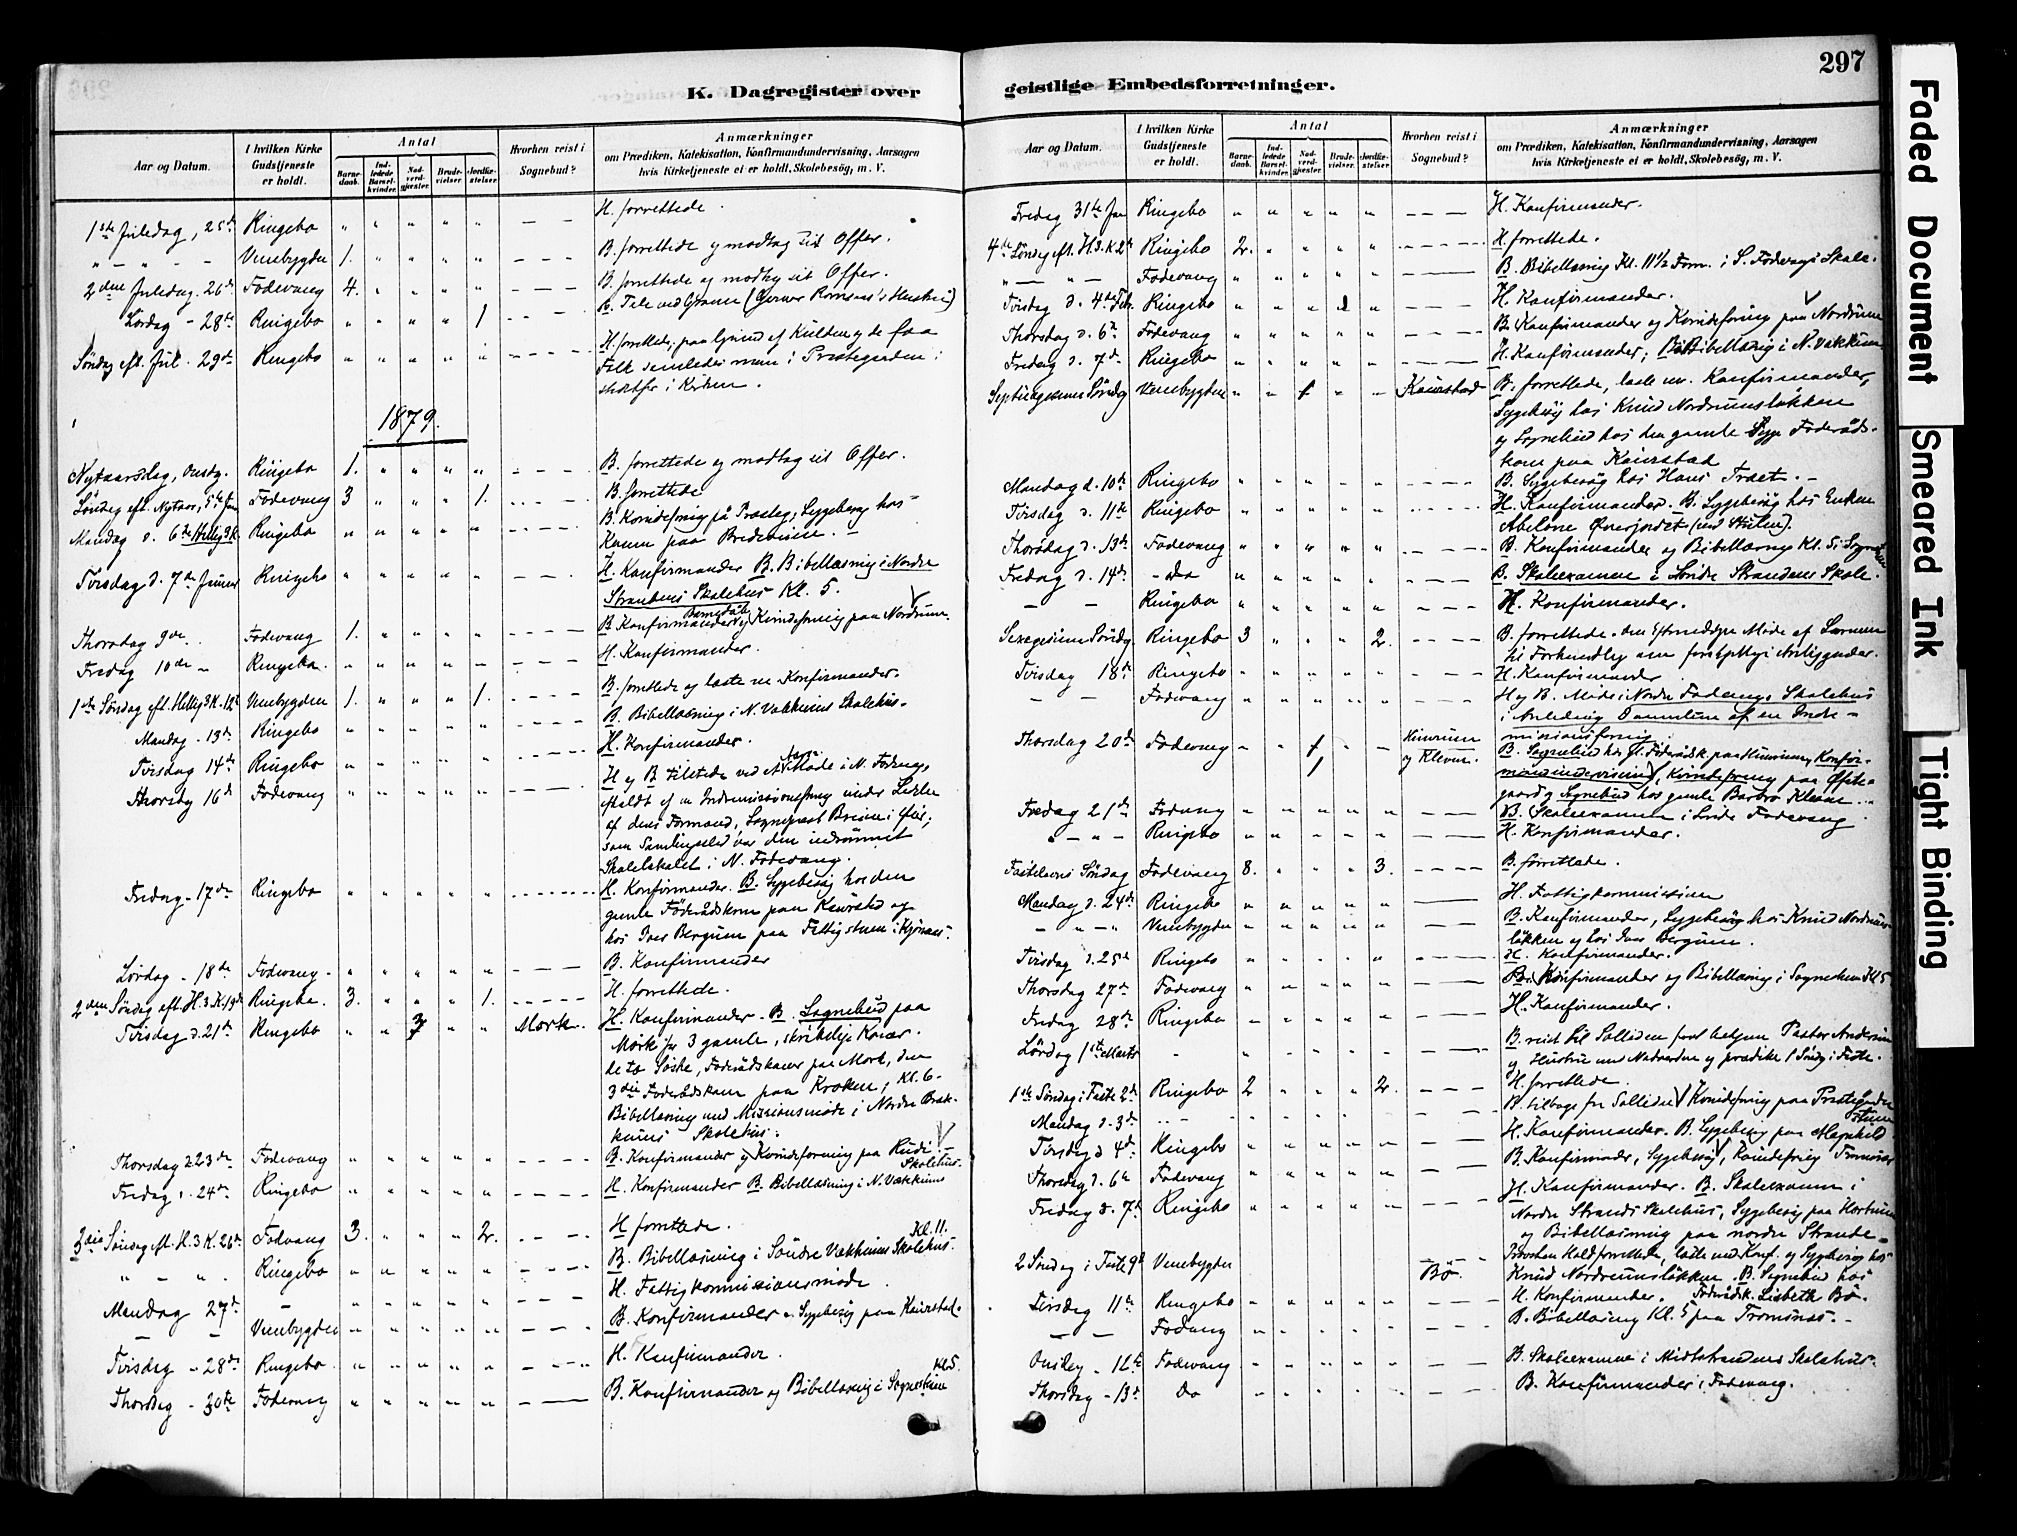 297
K. Dagregister over
geistlige Embedsforretninger.
Aar og Datum.
I hvilken Kirke
Gudstjeneste
er holdt.
Antal
Barne-
daab.
Ind-
ledede
Barsel-
kvinder.
Nad-
verd-
gjester.
Brude-
vielser.
Jordfæ-
stelser.
Hvorhen reist i
Sognebud?
Anmærkninger
om Prædiken, Katekisation, Konfirmandundervisning, Aarsagen
hvis Kirketjeneste ei er holdt, Skolebesög, m. V.
1ste Juledag, 25de Ringebo H. forrettede.
Venebygden 1. B. forrettede og modtog sit Offer.
2den Juledag 26de Fodevang 4. B. forrettede og modtog sit Offer.
Lördag - 28de Ringebo 1
Söndag eft. Jul. 29de Ringebo H. forrettede; paa Grund af Kulden og de faa
Folk samledes man i Præstegaarden i
stedetfor i Kirken.
1879.
Nytaarsdag, Onsdg. Ringebo 1. B. forrettede og modtog sit Offer.
Söndag eft. Nytaar, 5te Jan Fodevang 3 1. B. forrettede
Mandag d. 6te Hellig 3 K. Ringebo B. Kvindeforening på Præsteg; Sygebesög hos
Konen paa Bredevien.
Tirsdag d. 7de Januar Ringebo H. Konfirmander B. Bibellæsning i Nordre
Strandens Skolehus Kl. 5.
Thorsdag 9de Fodevang 1. B. Konfirmander og Kvindeforening paa Nordrum.
Fredag 10de Ringebo. H. Konfirmander.
1ste Söndag eft. Hellig 3 K. 12te Venebygden 1. 1. B. forrettede og læste m. Konfirmander.
Mandag - 13de Ringebo B. Bibellæsning i N. Vækkums Skolehus.
Tirsdag 14de Ringebo H. Konfirmander.
Thorsdag 16de Fodevang H og B tilstede ved Möde i N. Fodvangs
af dens Formand, Sogneprest Bruun i Öier;
som Samlingssted var dem indrömmet
Skolelokalet i N. Fodevang.
Fredag - 17de Ringebo H. Konfirmander. B. Sygebesög hos den
gamle Föderådskone paa Kaurstad og
hos Iver Bergum paa Fattigstuen i Kjönaas.
Lördag - 18de Fodevang B. Konfirmander
2den Söndag eft. H. 3 K. 19de Ringebo. 3. 1. H. forrettede.
Tirsdag d. 21de Ringebo 3 Mork. H. Konfirmander. B. Sognebud paa
Mork for 3 gamle, skröbelige Koner.
de to Söstre, Föderådskoner paa Mork, den
3die Föderådskone paa Kroken; Kl. 6
Bibellæsning med Missionsmöde i Nordre Bræk-
kums Skolehus.
Thorsdag 23de Fodevang B. Konfirmander og Kvindeforening paa Rudi
Fredag d. 24de Ringebo H. Konfirmander B. Bibellæsning i N. Vækkums
Skolehus.
3die Söndag eft. H. 3 K. 26de Fodvang 3. 2. H forrettede.
Ringebo B. Bibellæsning i Söndre Vækkums Skolehus. Kl. 11.
Mandag 27de H. Fattigkommissionsmöde.
Venebygden B. Konfirmander. Sygebesög paa Kaurstad.
Tirsdag - 28de Ringebo H. Konfirmander.
Thorsdag - 30te Fodevang B. Konfirmander og Bibellæsning i Sognestuen Kl. 5.
Aar og Datum.
I hvilken Kirke
Gudstjeneste
er holdt.
Antal
Barne-
daab.
Ind-
ledede
Barsel-
kvinder.
Nad-
verd-
gjester.
Brude-
vielser.
Jordfæ-
stelser.
Hvorhen reist i
Sognebud?
Anmærkninger
om Prædiken, Katekisation, Konfirmandundervisning, Aarsagen
hvis Kirketjeneste ei er holdt, Skolebesög, m. V.
Fredag 31te Jan Ringebo H. Konfirmander.
4de Söndag eft. H. 3. K 2de Ringebo 2. H. forrettede.
Fodevang B. Bibellæsning Kl. 11½ Form. i S. Fodevangs Skole.
Tirsdag d. 4de Febr. Ringebo H. Konfirmander.
Thorsdag d. 6te Fodevang B. Konfirmander og Kvindeforening paa Nordrum
Fredag d. 7de Ringebo H. Konfirmander; B. Bibellæsning i N. Vækkum
Septuagesima Söndag Venebygden 1 Kaurstad B. forrettede, læste m. Konfirmander,
Sygebesög hos Knud Nordrumsløkken
og Sognebud hos den gamle Föderåds-
kone paa Kaurstad
Mandag d. 10de Ringebo B. Sygebesög hos Hans Træet.
Tirsdag d. 11te Ringebo H. Konfirmander. B. Sygebesög hos Enken
Abelone Överjordet
Thorsdag d. 13de Fodevang B. Konfirmander og Bibellæsning Kl. 5 i Sognestuen
Fredag d. 14de Do B. Skoleexamen i Söndre Strandens Skole.
Ringebo H. Konfirmander.
Sexagesima Söndag Ringebo 3 2. B. forrettede.
Tirsdag 18de Ringebo H. Konfirmander
Fodevang H og B. Möde i Nordre Fodvangs Skolehus
i Anledning Dannelsen af en Indre-
missionsforening.
Thorsdag 20de Fodevang 1 Kinrum
og Kleven. 1 B. Sognebud hos Föderådsk. paa Kinrum, Konfir-
mandundervisning, Kvindeforening paa
gaard og Sognebud hos gamle Barbro Kleven.
Fredag 21de Fodvang B. Skoleexamen i Söndre Fodevang
Ringebo H. Konfirmander.
Fastelavns Söndag Fodevang 8. 3. B. forrettede.
Mandag d. 24de Ringebo H. Fattigkommission
Venebygden B. Konfirmander, Sygebesög hos Knud Nordrums-
løkken og hos Iver Bergum.
Tirsdag d. 25de Ringebo H. Konfirmander.
Thorsdag 27de Fodevang B. Konfirmander og Bibellæsning i Sognestuen Kl 5
Fredag 28de Ringebo H. Konfirmander.
Lördag 1ste Marts B. reist til Solliden for at betjene Pastor Andersen
og Hustru med Nadverden og prædike 1 Söndg i Faste.
1ste Söndag i Faste 2de Ringebo 2 2. H. forrettede.
Mandag d. 3de B. tilbage fra Solliden Kvindeforening paa Præstegaarden
Tirsdag d 4de Ringebo H. Konfirmander. B. Sygebesög paa
Thorsdag d. 6te Fodevang B. Konfirmander, Sygebesög, Kvindeforening Tromsnæs
Fredag d. 7de Ringebo H. Konfirmander. B. Skoleexamen i
Nordre Strands Skolehus, Sygebesög paa
og Bibellæsning paa nordre Strande.
2 Söndag i Faste 9de Venebygden Bö. Provsten Hald forrettede, læste med Konf. og Sygebesög hos
Knud Nordrumsløkken. B. Sognebud hos
Föderådsk. Lisbeth Bö.
Tirsdag 11te Ringebo H. Konfirmander.
Fodvang B. Bibellæsning Kl. 5 paa Tromsnæs.
Onsdag - 12te Fodevang B. Skoleexamen i Midtstrandens Skolehus.
Thorsdag - 13de Do B. Konfirmander i Fodevang.
Faded Document
Smeared Ink
Tight Binding